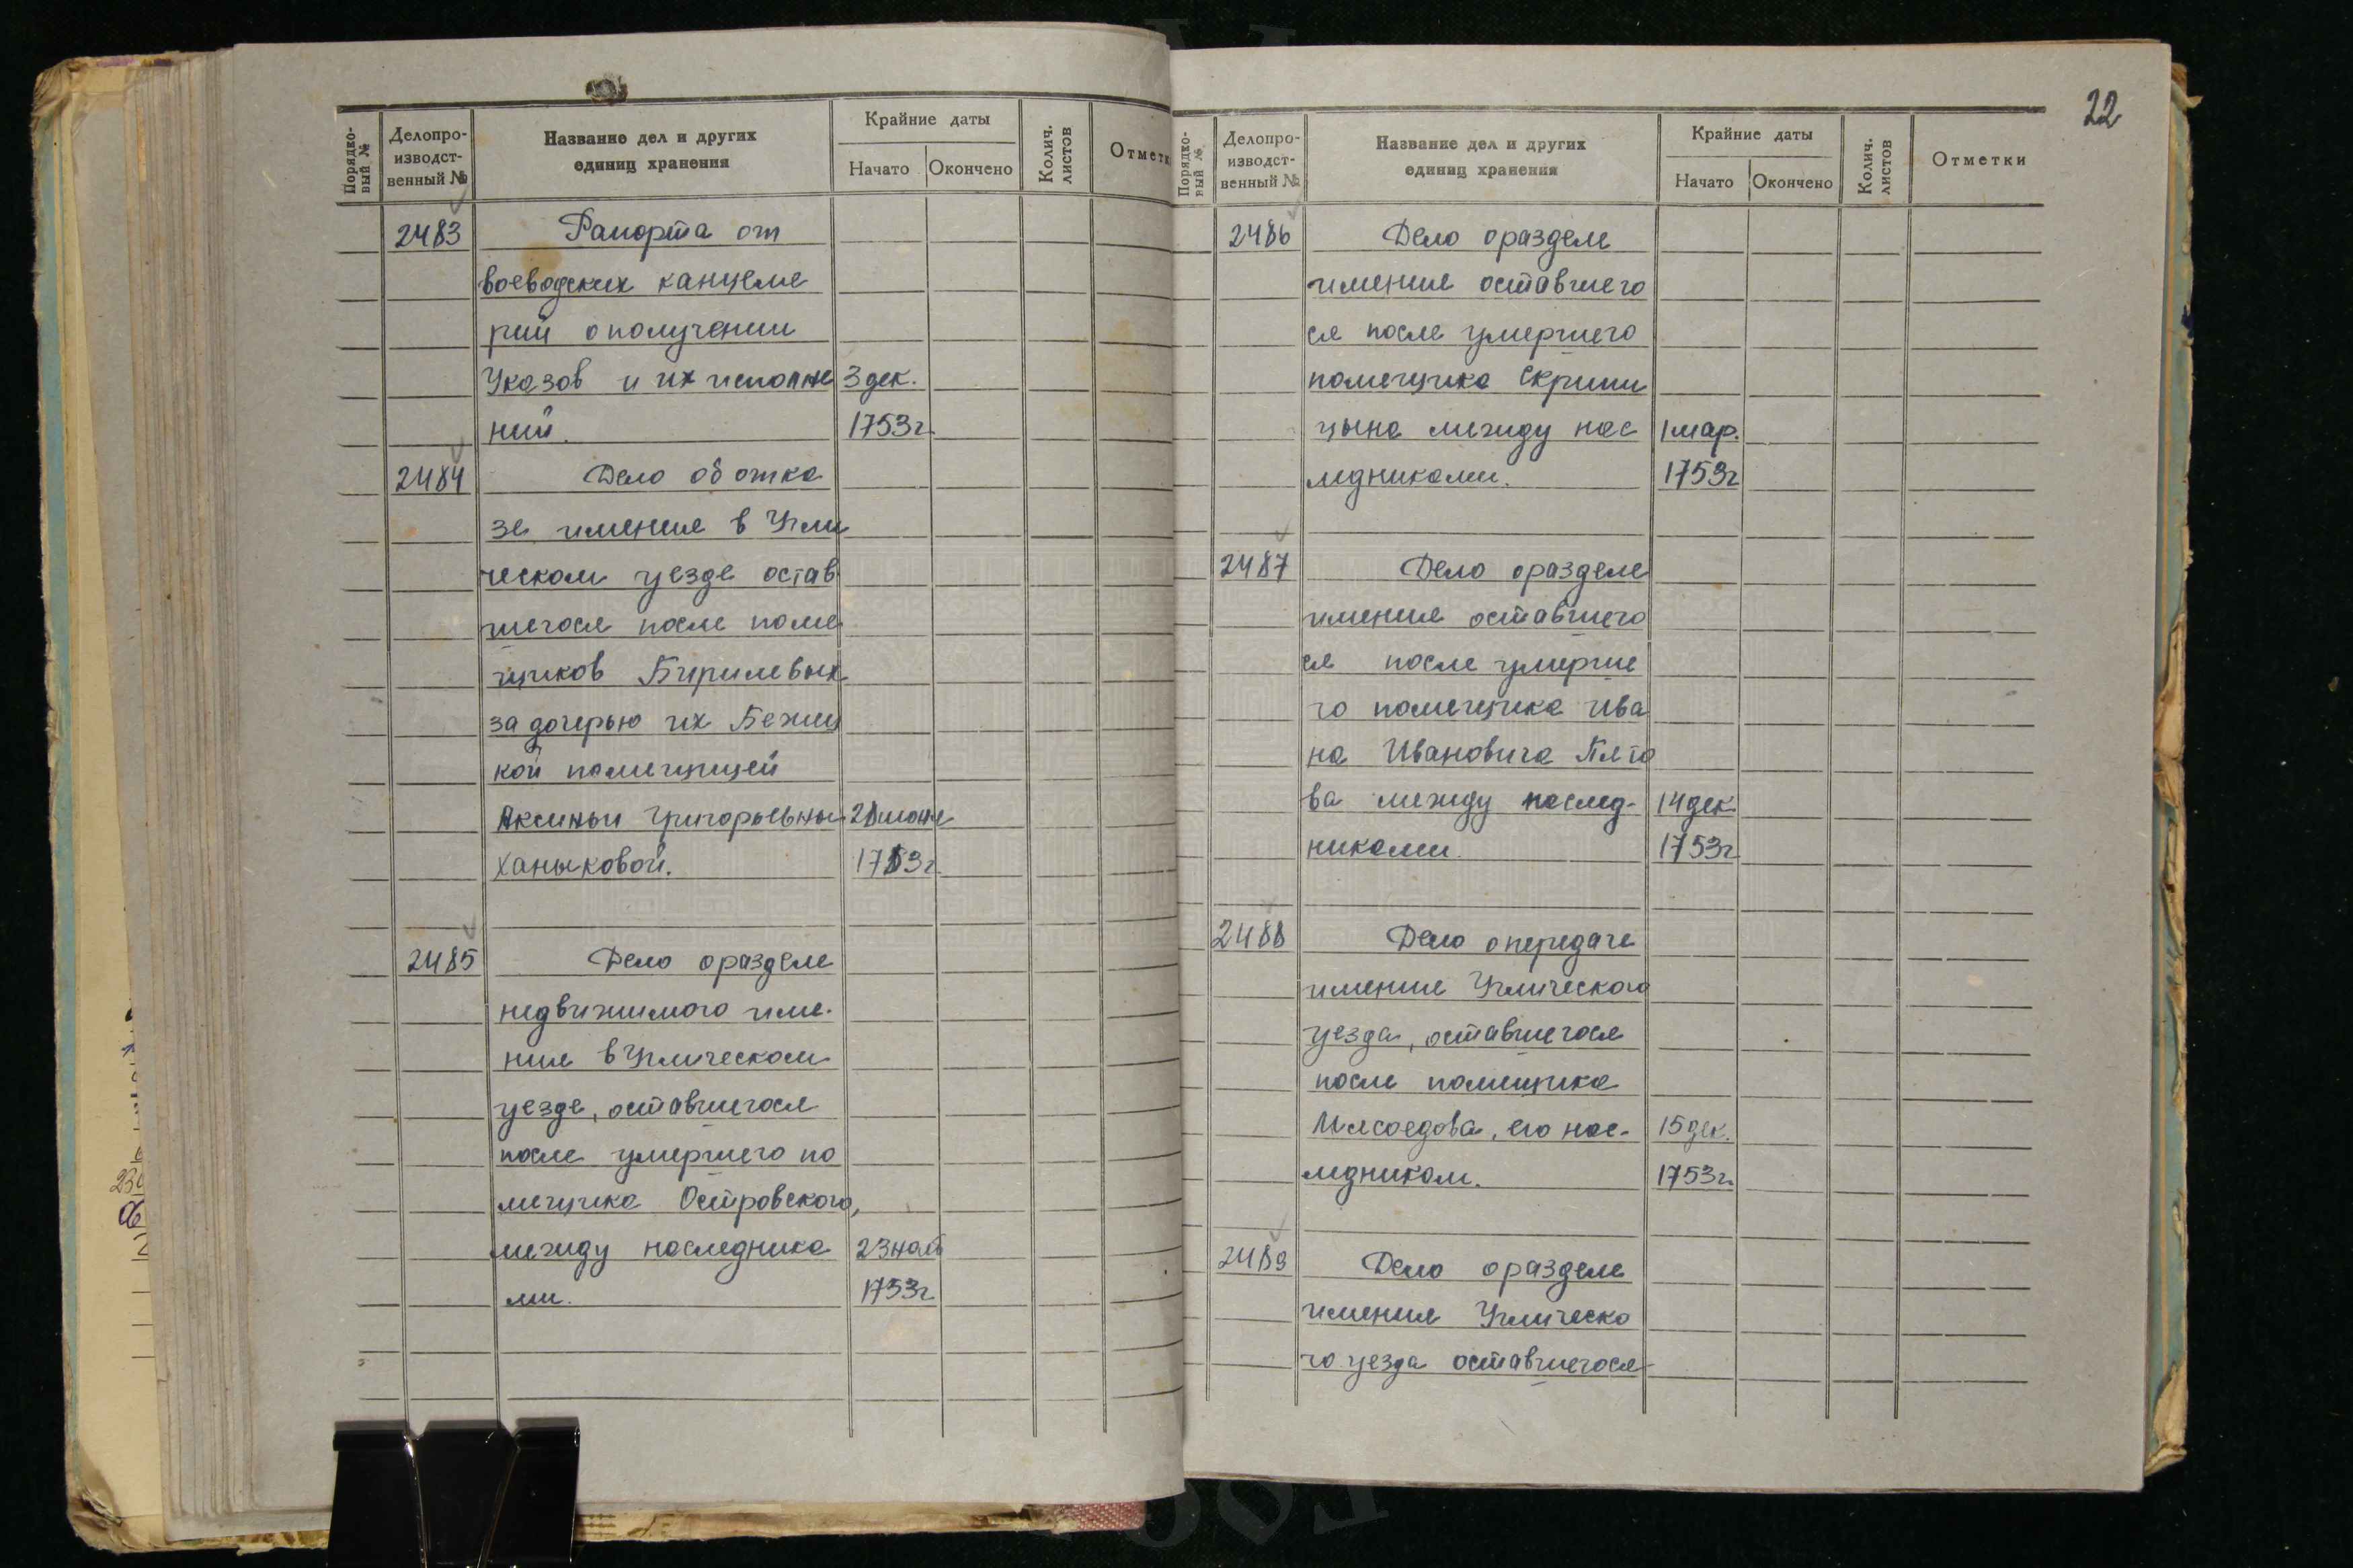 Порядко-
вый №
Делопро-
изводст-
венный №
Название дел и других
единиц хранения
Крайние даты
Начато
Окончено
Колич.
листов
Отметк
2483 Рапорта от
воеводских канцеле
рий о получении
Указов и их исполне 3 дек.
ний. 1753г.
2484 Дело об отка
зе имения в Угли
ческом уезде остав
шегося после поме
щиков Бирилевых
за дочерью их Бежец
кой помещицей
Аксиньи Григорьевны 21 июня
Ханыковой. 1753г.
2485 Дело о разделе
недвижимого име-
ния в Угличском
уезде, оставшегося
после умершего по
мещика Островского,
между наследника 23 нояб
ми. 1753г.
22
Порядко-
вый №
Делопро-
изводст-
венный №
Название дел и других
единиц хранения
Крайние даты
Начато
Окончено
Колич.
листов
Отметки
2486 Дело о разделе
имения оставшего
ся после умершего
помещика Скрипи
цына между нас 1 мар.
ледниками. 1753г
2487 Дело о разделе
имения оставшего
ся после умерше
го помещика Ива
на Ивановича Пято
ва между наслед- 14 дек
никами. 1753г
2488 Дело о передаче
имения Угличского
уезда, оставшегося
после помещика
Мясоедова, его нас- 15 дек.
ледникам. 1753г.
2489 Дело о разделе
имения Угличско
го уезда оставшегося